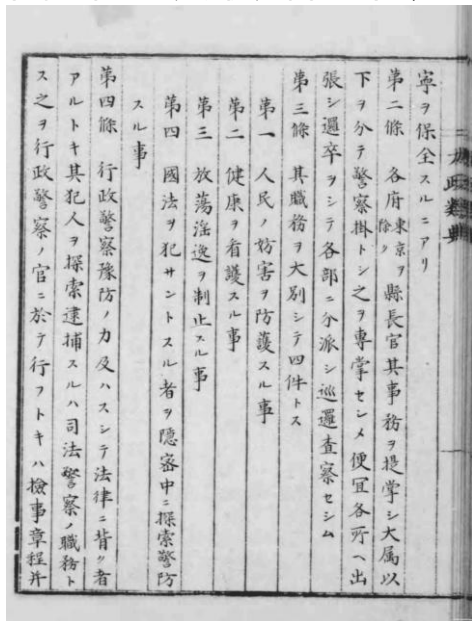 寧ヲ保全スルニアリ
第二條 各府東京ヲ除ク縣長官其事務ヲ提掌シ大属以
下ヲ分テ警察掛トシ之ヲ專掌セシメ便冝各所ヘ出
張シ邏卒ヲシテ各部ニ分派シ巡邏査察セシム
第三條 其職務ヲ大別シテ四件トス
第一 人民ノ妨害ヲ防護スル事
第二 健康ヲ看護スル事
第三 放蕩淫逸ヲ制止スル事
第四 國法ヲ犯サントスル者ヲ隠密中ニ探索警防
スル事
第四條 行政警察豫防ノ力及ハスシテ法律ニ背ク者
アルトキ其犯人ヲ探索逮捕スルハ司法警察ノ職務ト
ス之ヲ行政警察ノ官ニ於テ行フトキハ檢事章程并